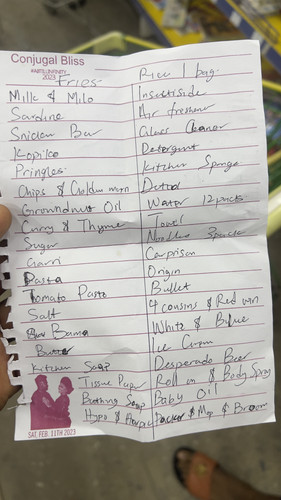 Conjugal Bliss
#ABTILLINFINITY
2023
Fries
Milk & Milo
Sardine
Snicker Bar
Kopiko
Pringles
Chips & Golden morn
Groundnut Oil
Curry & Thyme
Sugar
Garri
Pasta
Tomato Paste
Salt
Bama
Butter
Kitchen Soap
Tissue Paper
Bathing Soap
Hypo & Harpic
SAT, FEB. 11TH 2023
Rice 1 bag
Insectiside
Air freshner
Glass Cleaner
Detergent
Kitchen Sponge
Dettol
Water 12 packs
Towel
Noodles 3packs
Caprison
Origin
Bullet
4 cousins & Red win
White & Blue
Ice Cream
Desperado Beer
Roll on & Body Spray
Baby Oil
Packer & Mop & Broom